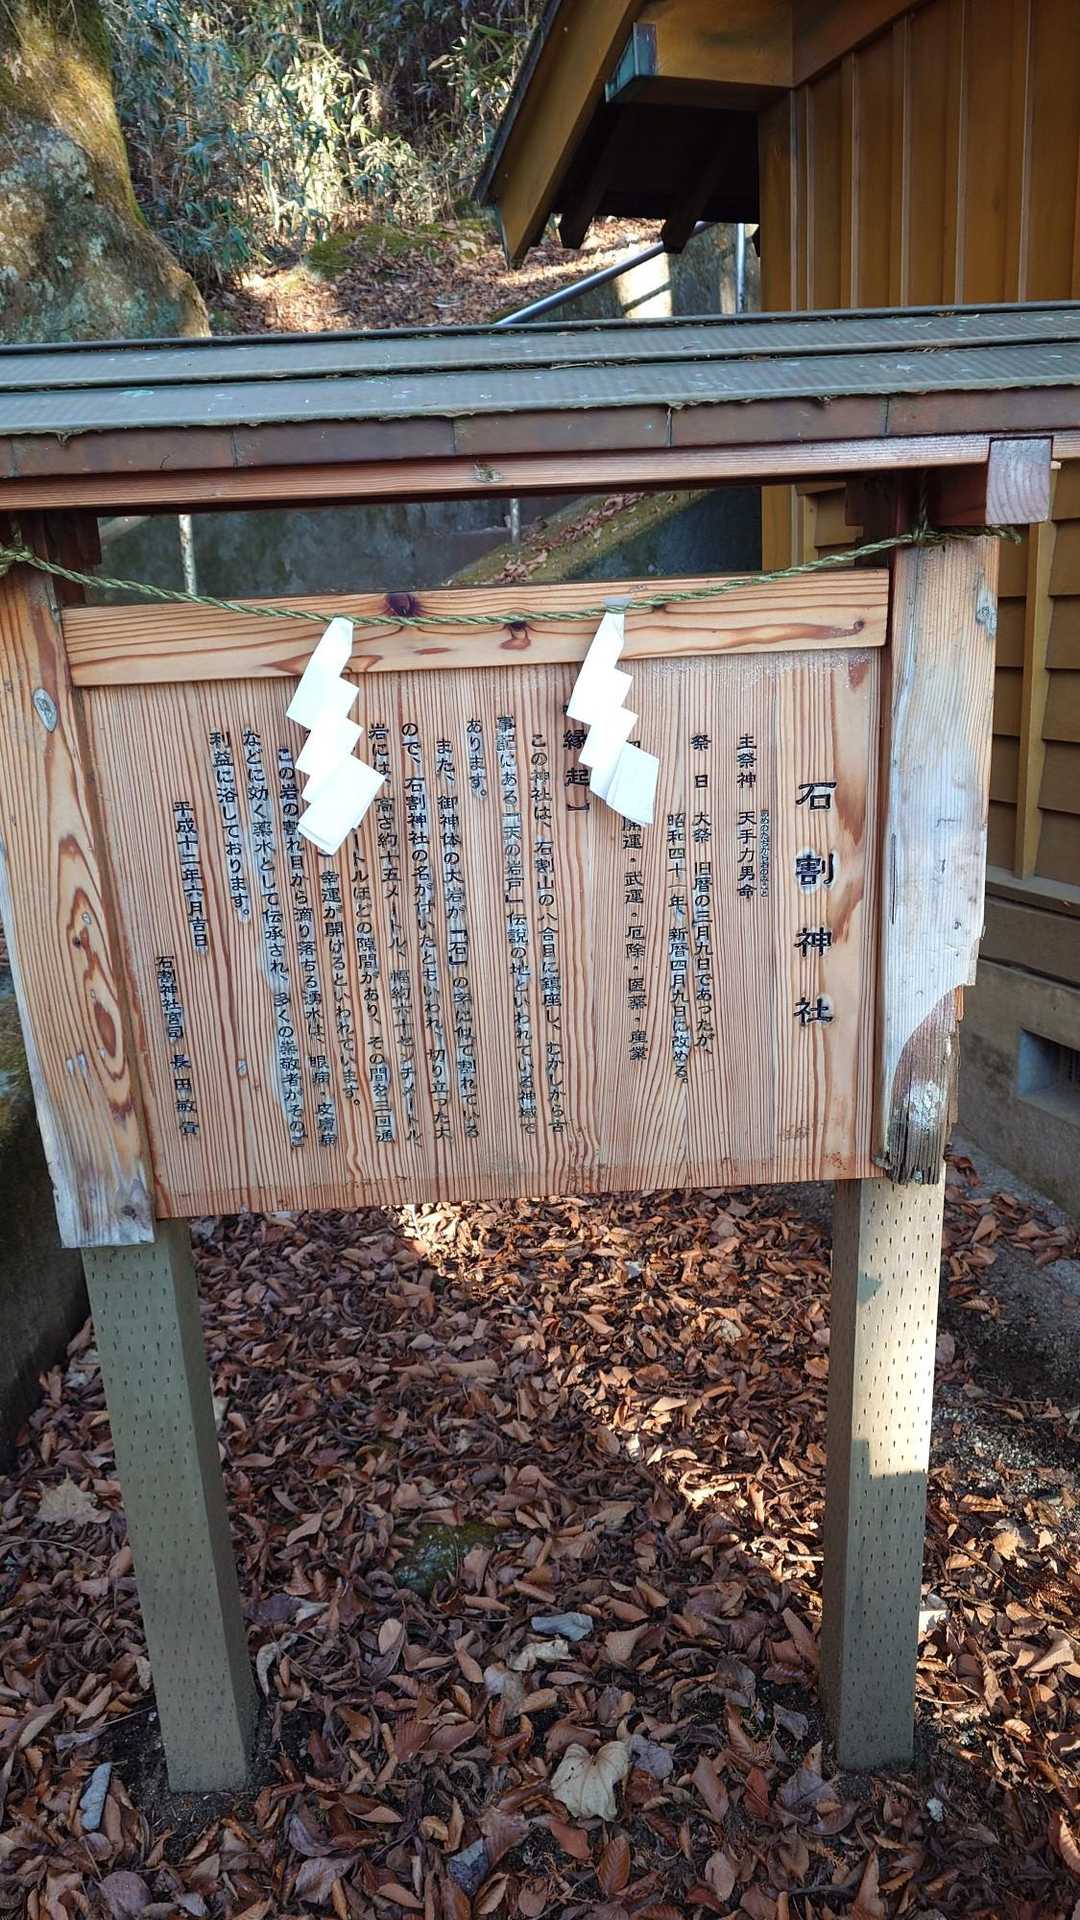 石割神社
主祭神 天手力男命
祭日 大祭 旧暦の三月九日であったが、
昭和四十一年、新暦四月九日に改める。
開運・武運・厄除・医薬・産業
縁起】
この神社は、石割山の八合目に鎮座し、むかしから古
事記にある「天の岩戸」伝説の地といわれている神域で
あります。
また、御神体の大岩が、「石」の字に似て割れている
ので、石割神社の名が付いたともいわれ、切り立った大
岩には、高さ約十五メートル、幅約六十センチメートル
トルほどの隙間があり、その間を三回通
幸運が開けるといわれています。
この岩の割れ目から滴り落ちる湧水は、眼病・皮膚病
などに効く薬水として伝承され、多くの崇敬者がそのご
利益に浴しております。
平成十二年六月吉日
石割神社宮司 長田敏貴